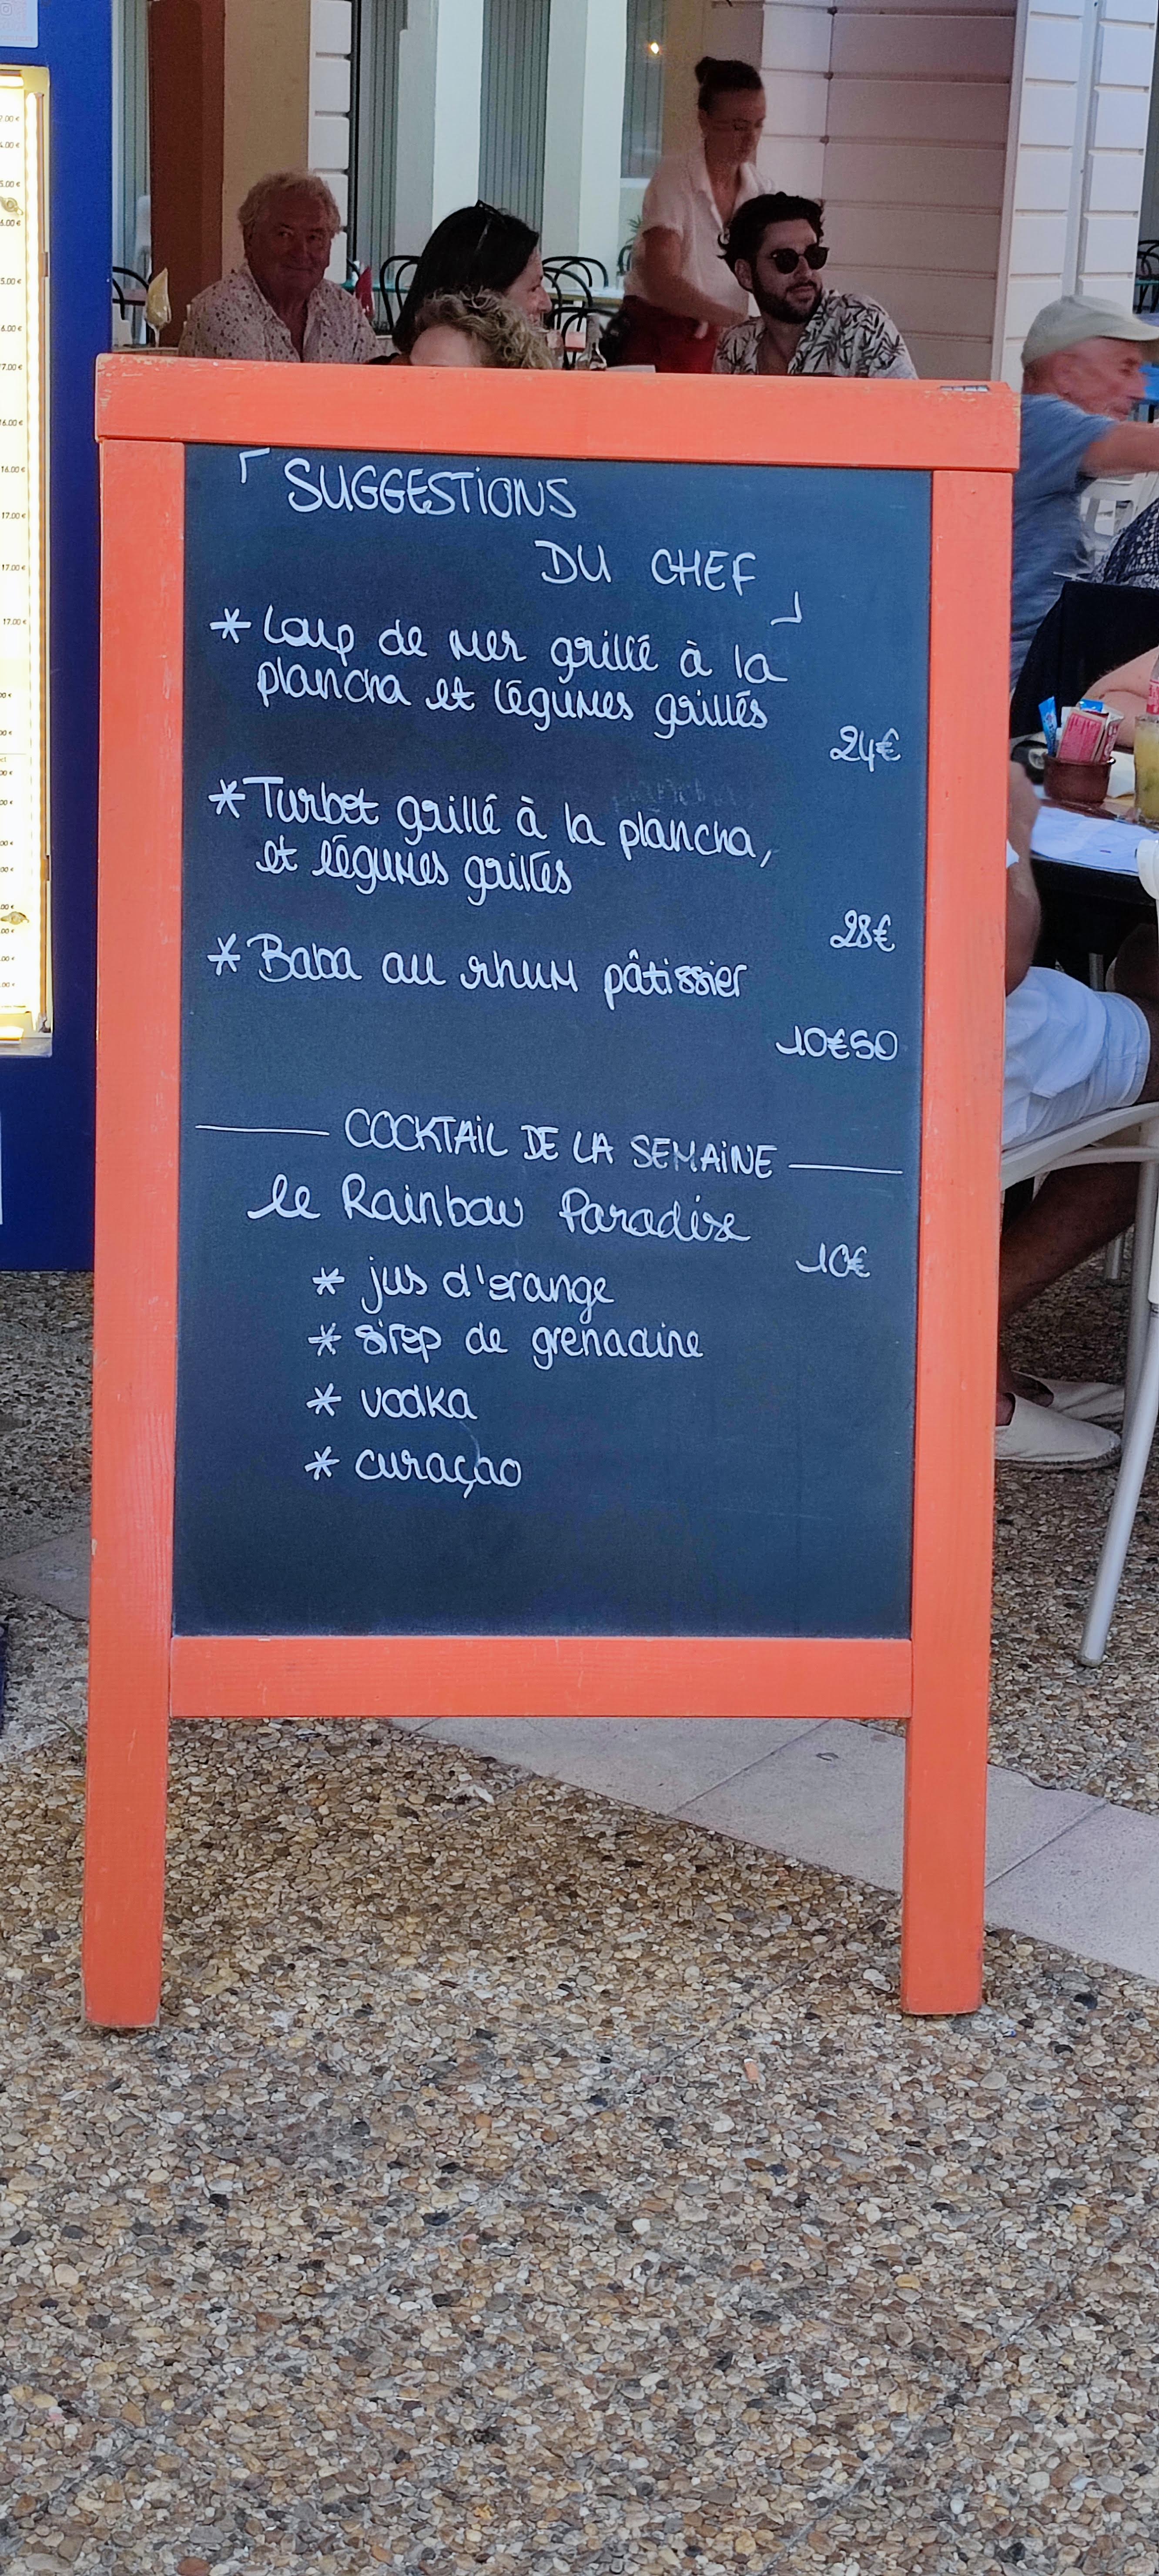 SUGGESTIONS
DU CHEF
* Loup de mer grillé à la
plancha et légumes grillés
24€
* Turbot grillé à la plancha,
et légumes grillés
28€
* Baba au rhum pâtissier
10€50
COCKTAIL DE LA SEMAINE
le Rainbow Paradise
10€
* jus d'orange
* sirop de grenadine
* vodka
* curaçao